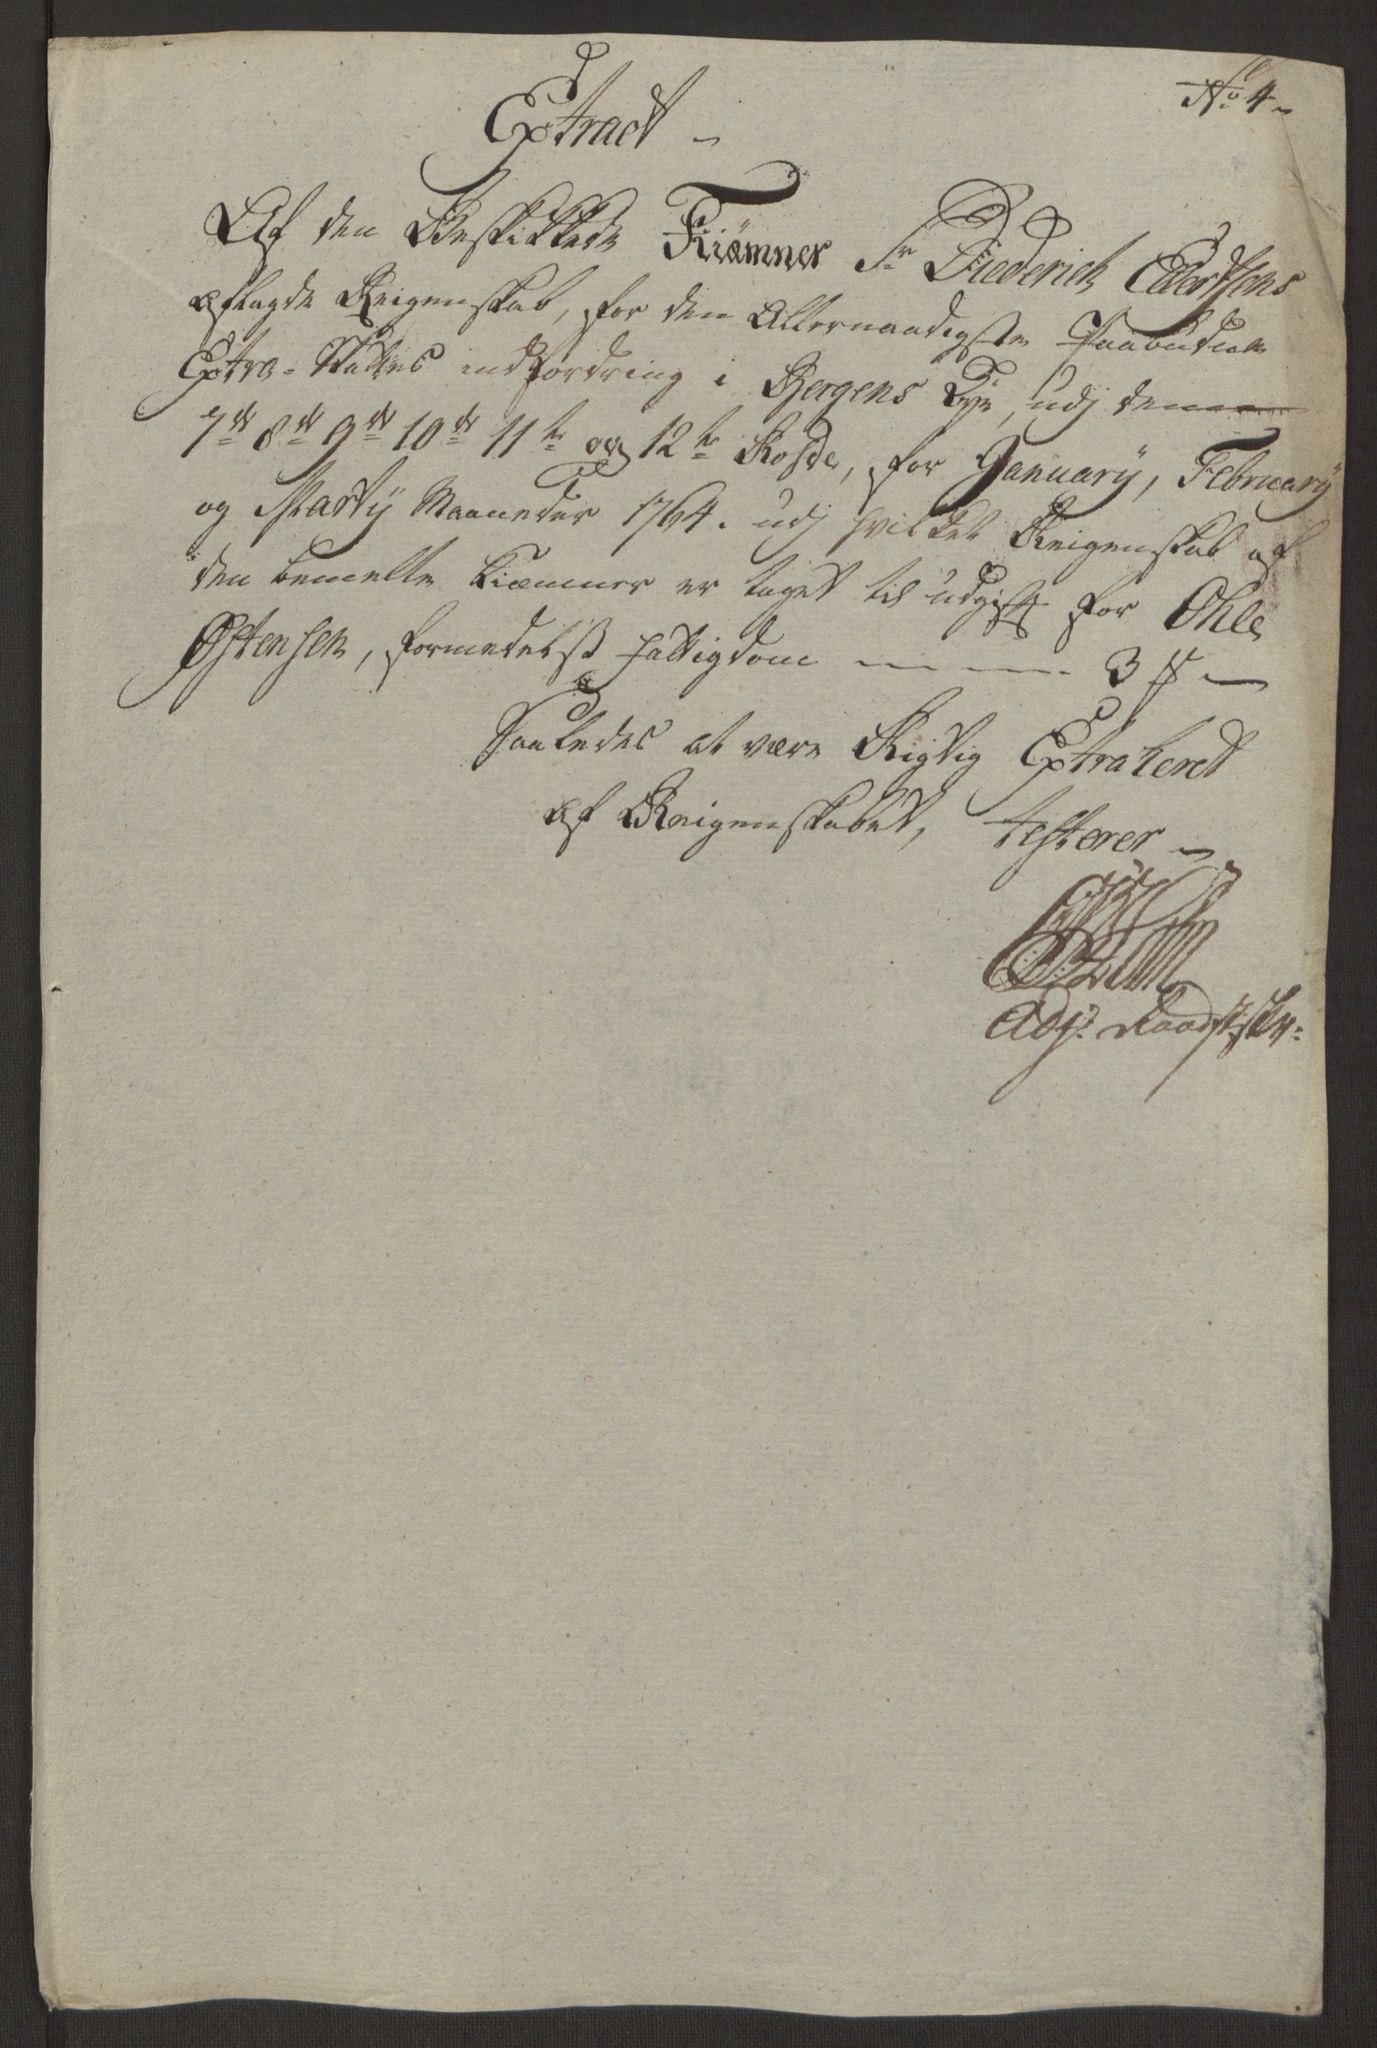 No 4
Extract
Af den Beskikkede Kiæmner Sr Diederich
aflagde Reigenskab, for den Allernaadigste Paabudne
Extra-Skattes indfordring i Bergens Bye, udj den
7de 8de 9de 10de 11te og 12te Rohde, for Januarÿ, Februarÿ
og Martÿ Maaneder 1764. udj hvilket Reigenskab af
den bemelte Kiæmner er taget til udgift for Ohle
Østensen, formedelst fattigdom 3 ß
Saaledes at være Rigtig Extraheret
af Reigenskabet, testerer
Adj: Raadst: skr: